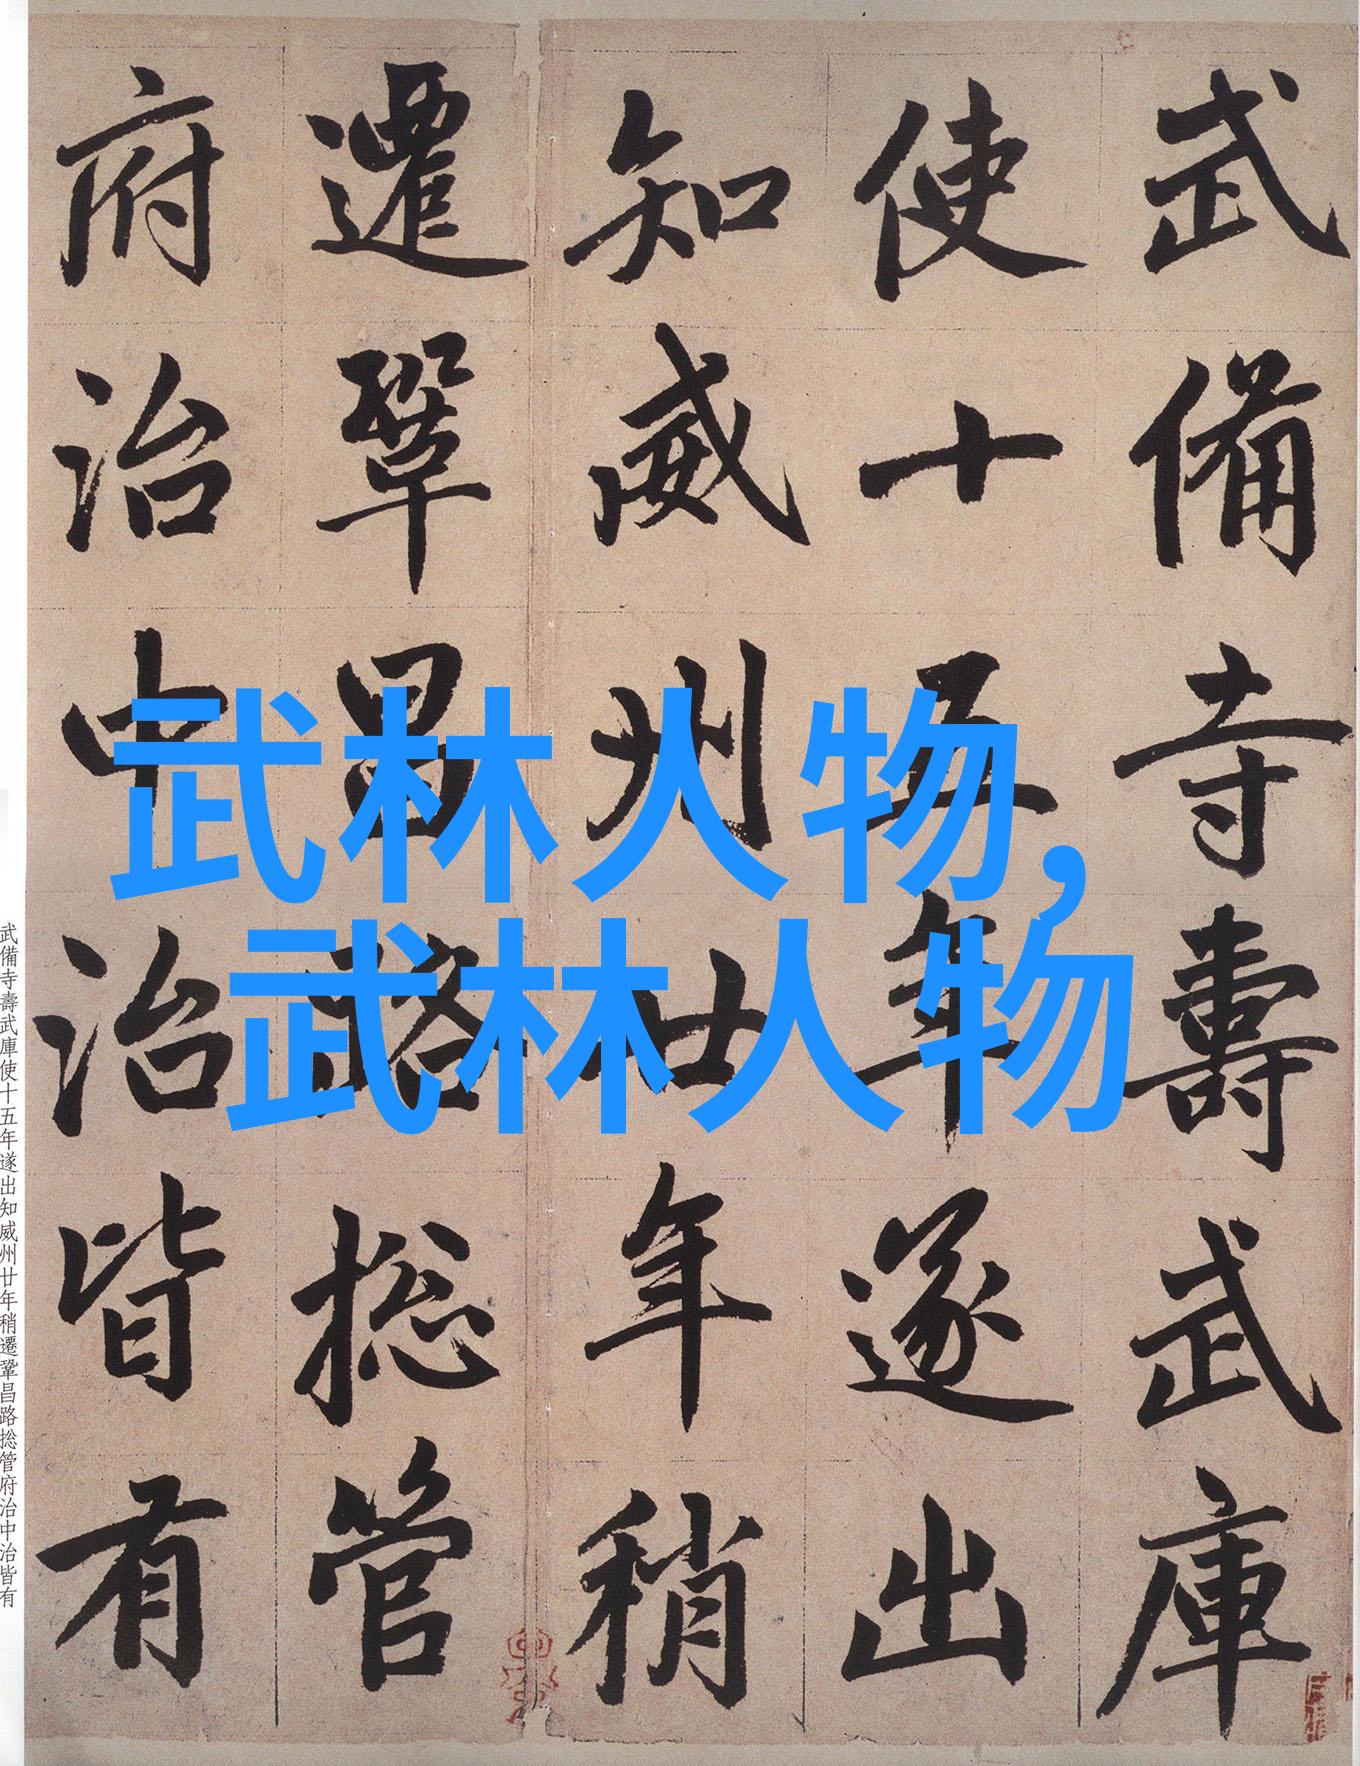 武備寺壽武庫
使十五年遂出
知威州廿年稍
遷鞏昌路捴管
府治中治皆有
武林人物,
武林人物
武備寺壽武庫使十五年遂出知威州廿年稍遷鞏昌路捴管府治中治皆有